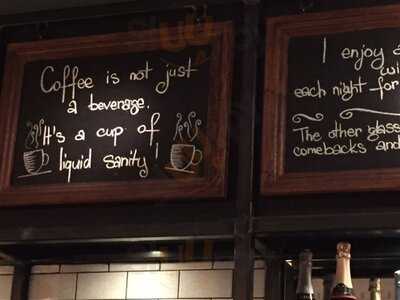 Coffee is not just
a beverage.
It's a cup of
liquid sanity!
I enjoy a
wi
each night for
The other glass
comebacks and